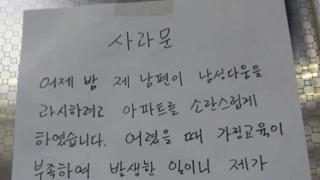 사과문
어제 밤 제 남편이 남성다움을
과시하려고 아파트를 소란스럽게
하였습니다. 어렸을 때 가정교육이
부족하여 발생한 일이니 제가